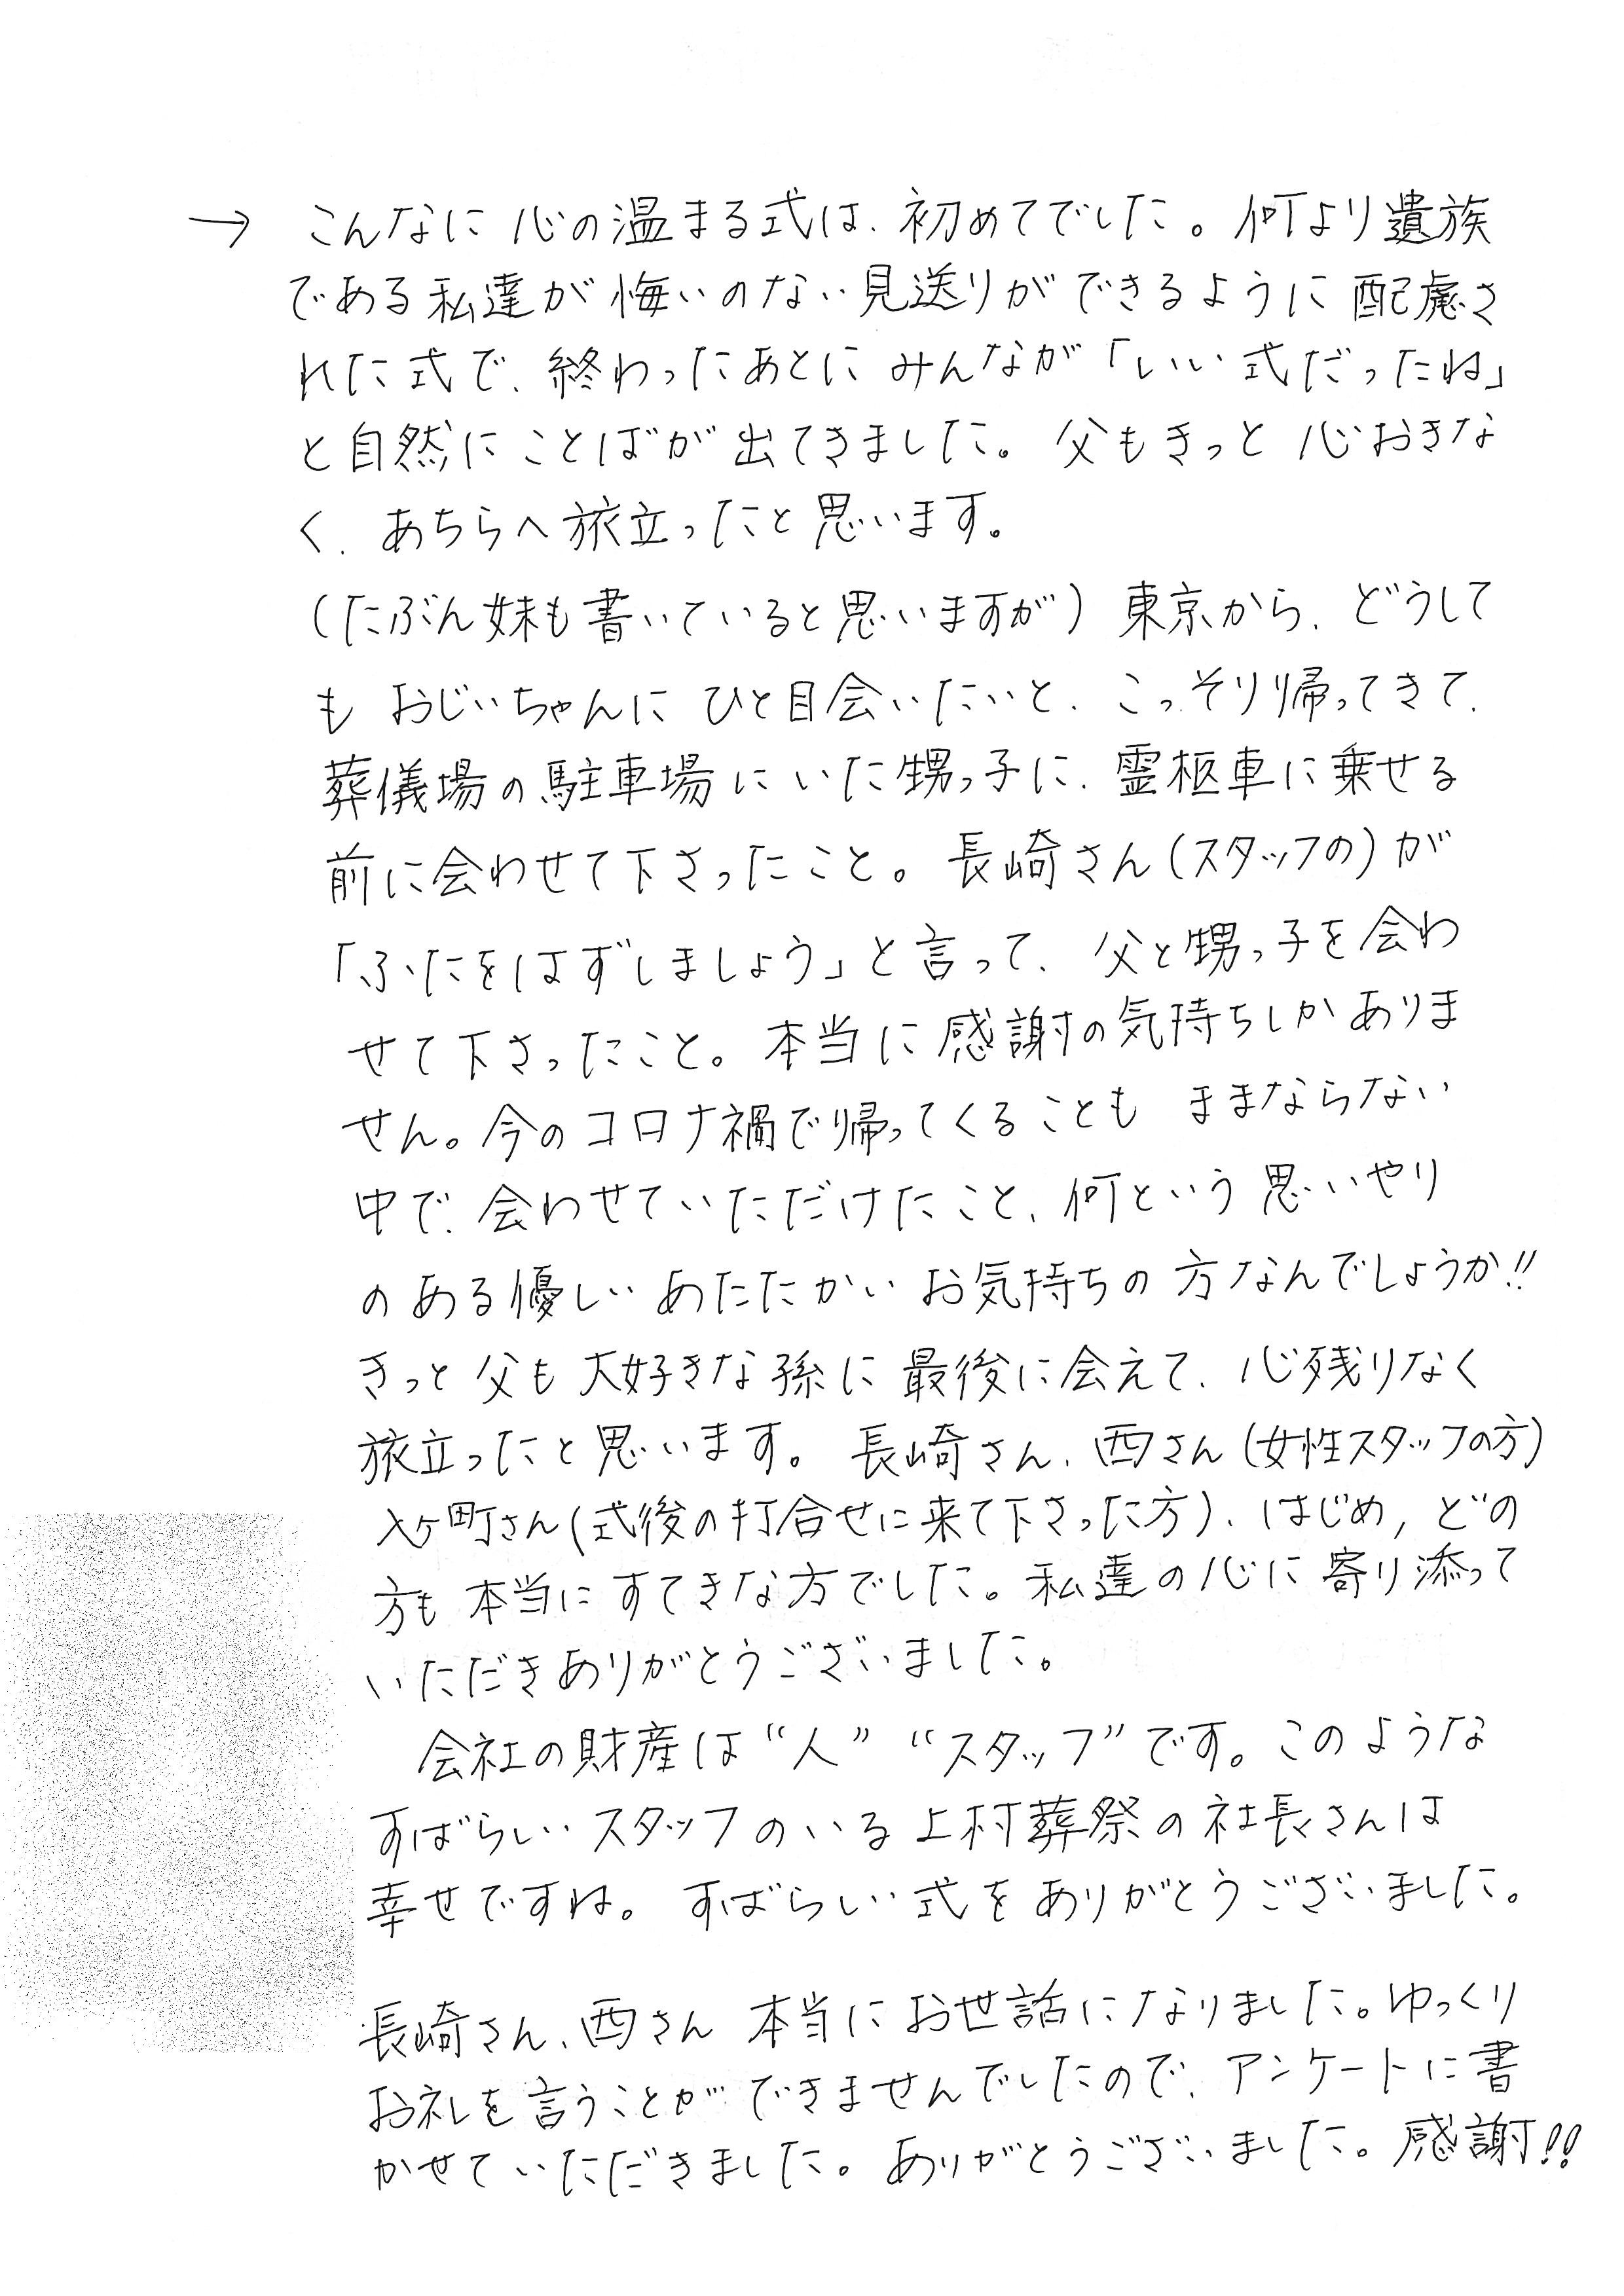 → こんなに心の温まる式は、初めてでした。何より遺族
である私達が悔いのない見送りができるように配慮さ
れた式で、終わったあとにみんなが「いい式だったね」
と自然にことばが出てきました。父もきっと心おきな
く、あちらへ旅立ったと思います。
(たぶん妹も書いていると思いますが)東京から、どうして
もおじいちゃんにひと目会いたいと、こっそり帰ってきて、
葬儀場の駐車場にいた甥っ子に、霊柩車に乗せる
前に会わせて下さったこと。長崎さん(スタッフの)が
「ふたをはずしましょう」と言って、父と甥っ子を会わ
せて下さったこと。本当に感謝の気持ちしかありま
せん。今のコロナ禍で帰ってくることもままならない
中で、会わせていただけたこと、何という思いやり
のある優しいあたたかいお気持ちの方なんでしょうか!!
きっと父も大好きな孫に最後に会えて、心残りなく
旅立ったと思います。長崎さん、西さん(女性スタッフの方)
入ヶ町さん(式後の打合せに来て下さった方)、はじめ, どの
方も本当にすてきな方でした。私達の心に寄り添って
いただきありがとうございました。
会社の財産は“人”“スタッフ”です。このような
すばらしいスタッフのいる上村葬祭の社長さんは
幸せですね。すばらしい式をありがとうございました。
長崎さん、西さん 本当にお世話になりました。ゆっくり
お礼を言うことができませんでしたので、アンケートに書
かせていただきました。ありがとうございました。感謝!!